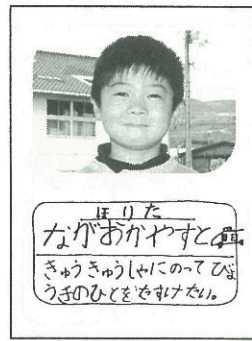 ほりた
ながおかやすと
きゅうきゅうしゃにのって びょ
うきのひとをたすけたい。